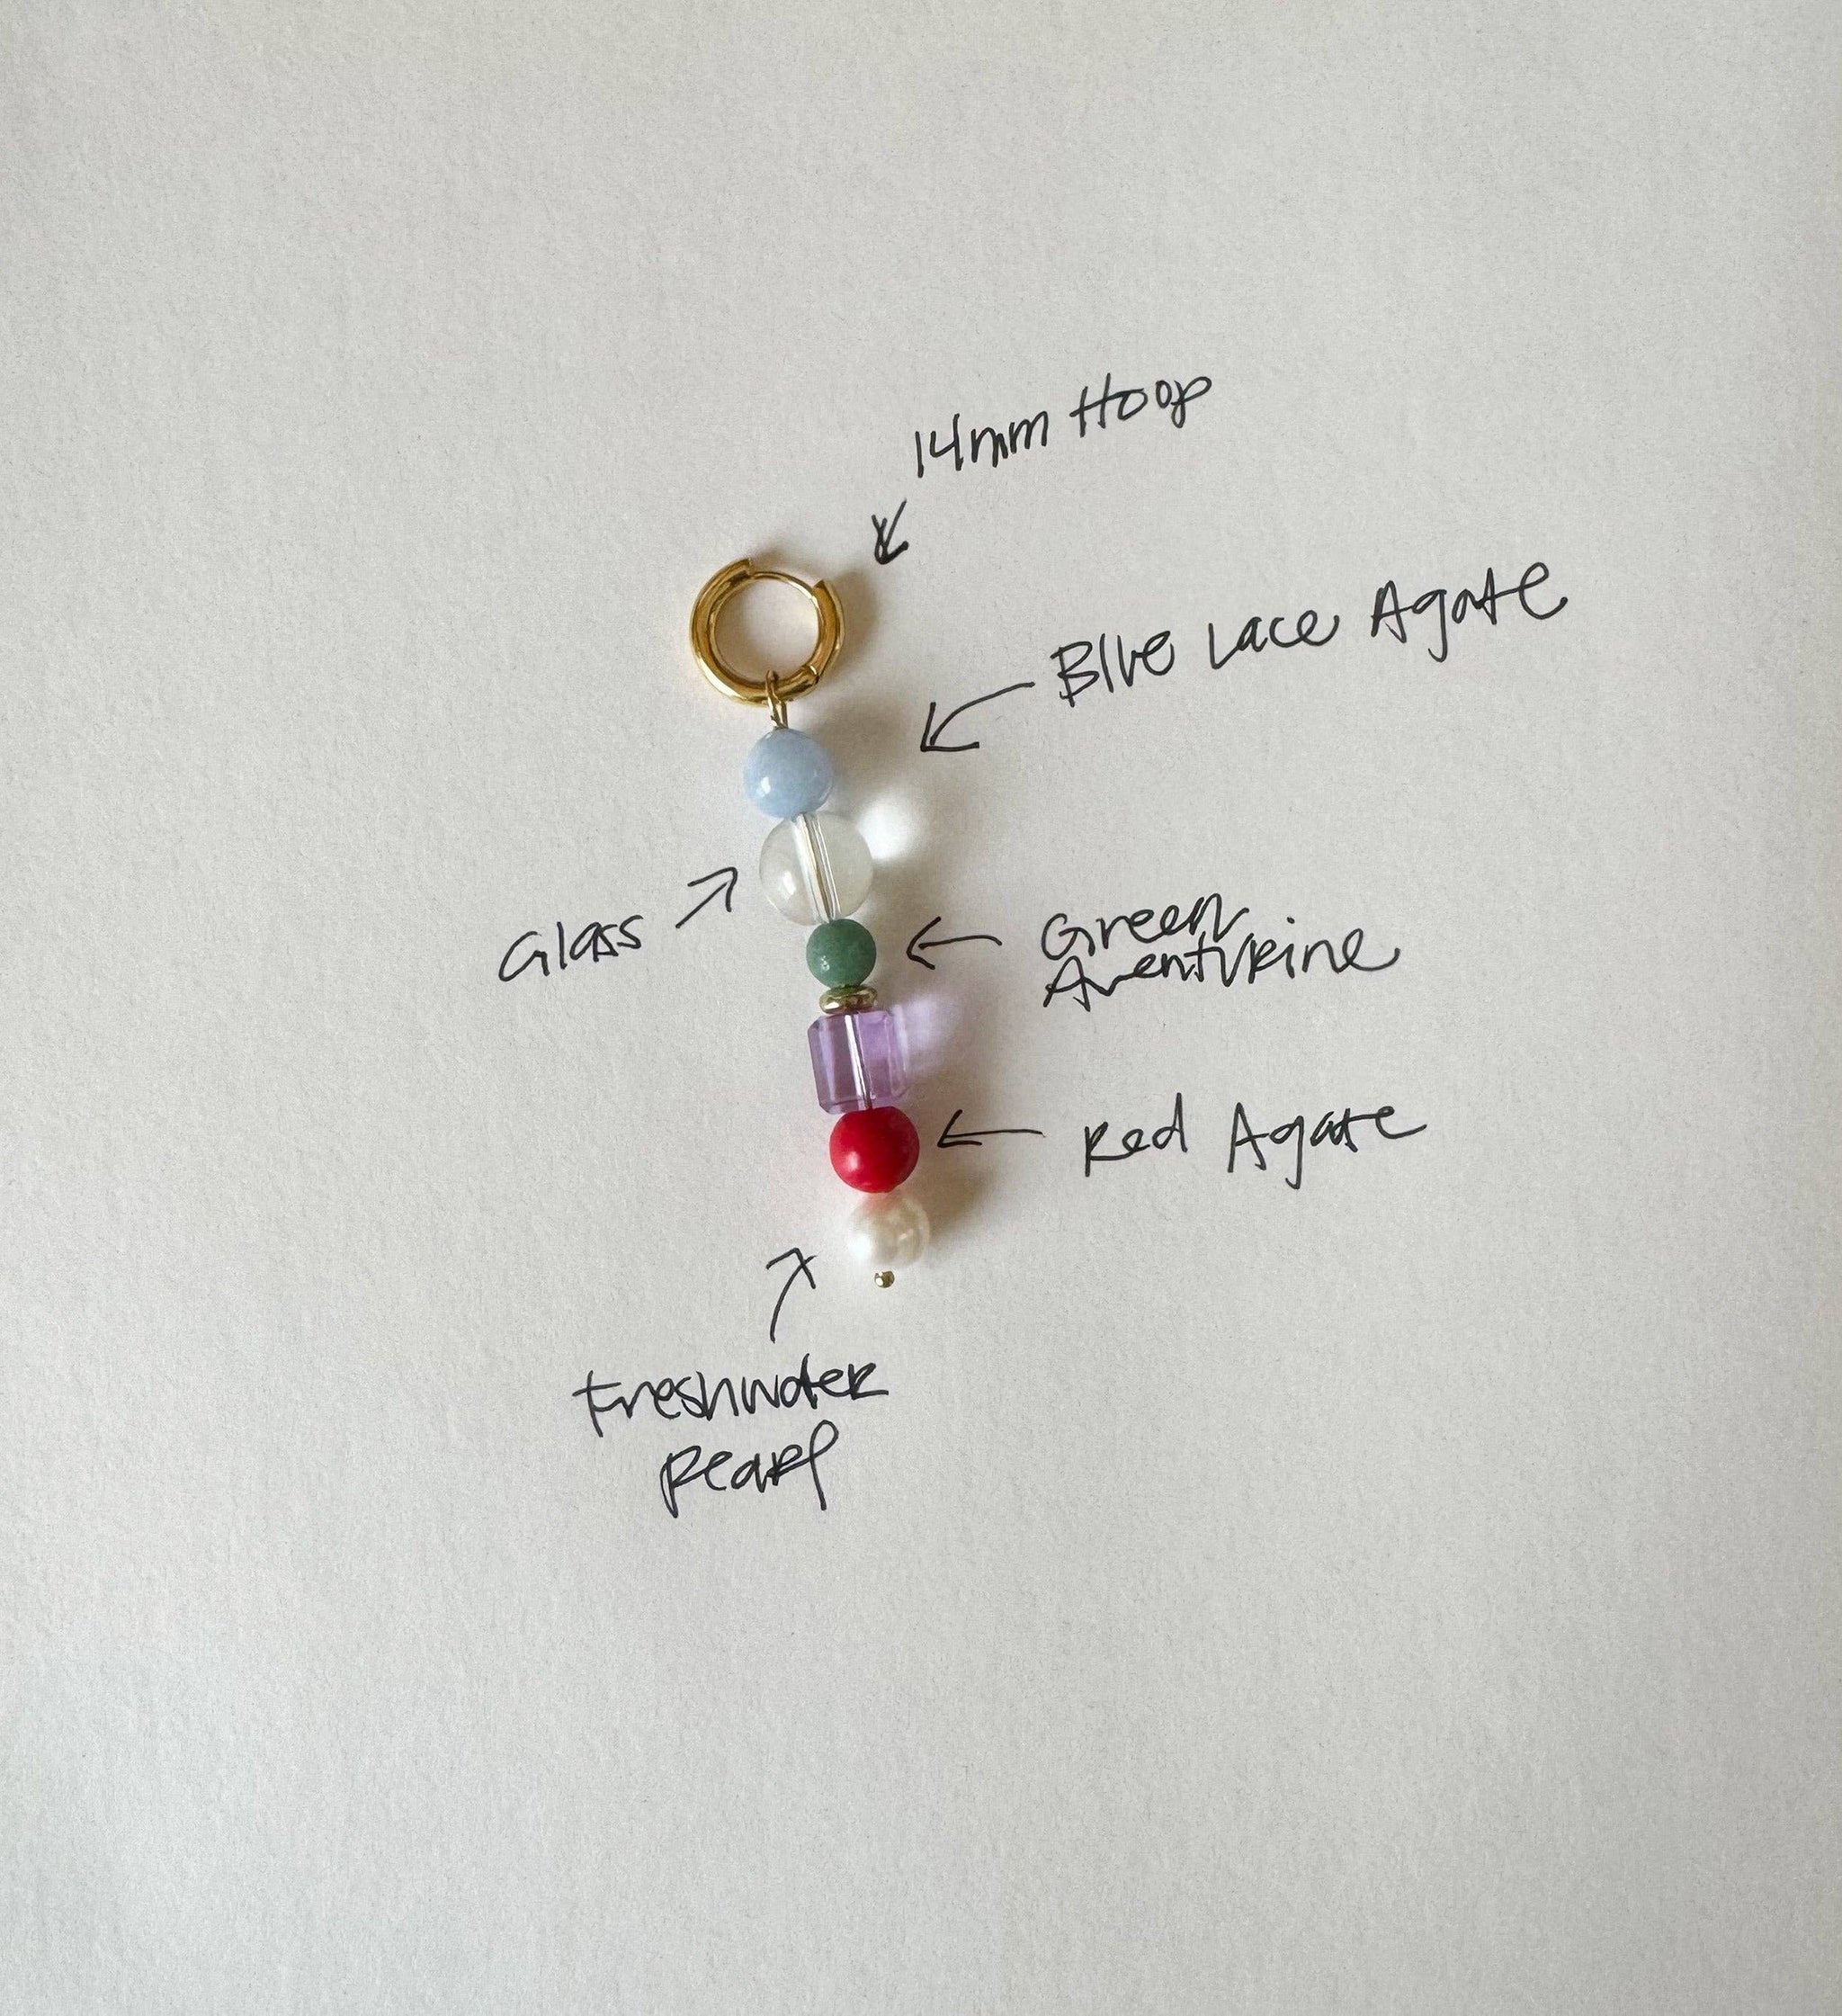 14mm Hoop
Blue Lace Agate
Glass
Green
Aventurine
Red Agate
Freshwater
Pearl